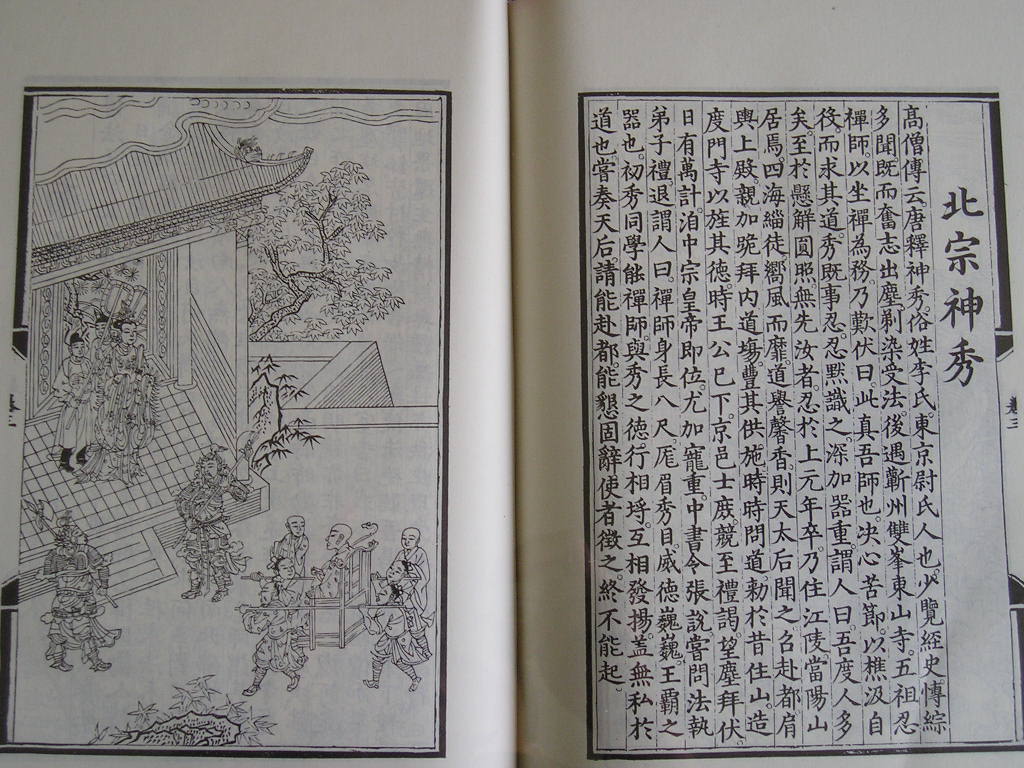 北宗神秀
高僧傳云唐釋神秀。俗姓李氏。東京尉氏人也。少覽經史博綜
多聞。既而奮志出塵。剃染受法。後遇蘄州雙峯東山寺。五祖忍
禪師。以坐禪為務。乃歎伏曰。此真吾師也。決心苦節。以樵汲自
役。而求其道。秀既事忍。忍默識之。深加器重。謂人曰吾度人多
矣。至於懸解圓照。無先汝者。忍於上元年卒。乃住江陵當陽山
居焉。四海緇徒。嚮風而靡。道譽馨香。則天太后聞之。召赴都。肩
輿上殿。親加跪拜。內道場豐其供施。時時問道。勅於昔住山。造
度門寺。以旌其德。時王公已下。京邑士庶。競至禮謁。望塵拜伏
日有萬計。洎中宗皇帝即位。尤加寵重。中書令張說。嘗問法。執
弟子禮。退謂人曰。禪師身長八尺。厖眉秀目。威德巍巍。王霸之
器也。初秀同學能禪師。與秀之德行相埒。互相發揚。蓋無私於
道也。嘗奏天后。請能赴都。能懇固辭。使者徵之。終不能起。
卷三